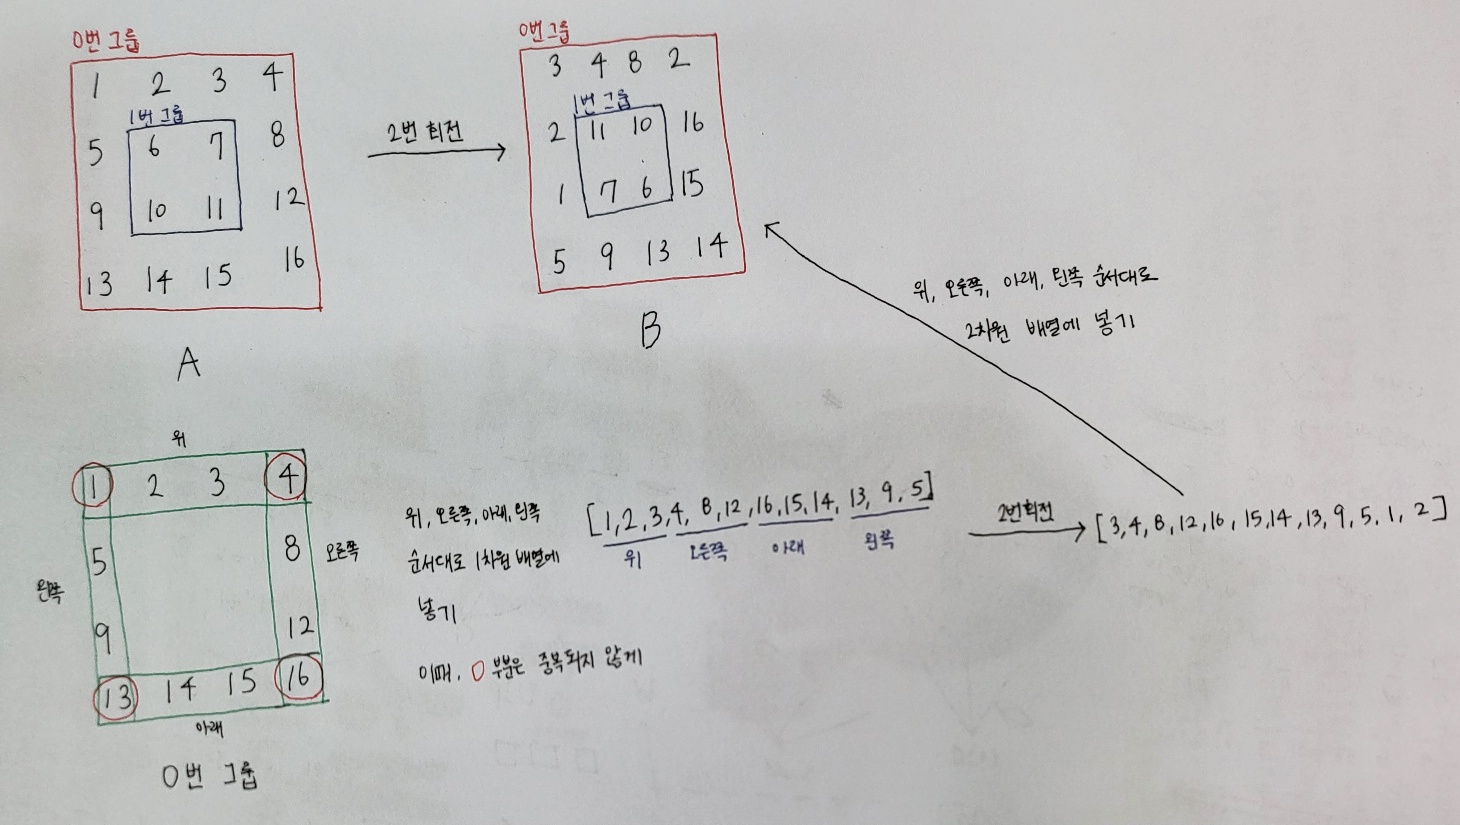 0번 그룹
1 2 3 4
1번 그룹
5 6 7 8
9 10 11 12
13 14 15 16
A
2번 회전
0번 그룹
3 4 8 2
1번 그룹
2 11 10 16
1 7 6 15
5 9 13 14
B
위, 오른쪽, 아래, 왼쪽 순서대로
2차원 배열에 넣기
위
1 2 3 4
5 8
9 12
13 14 15 16
왼쪽
오른쪽
아래
0번 그룹
위, 오른쪽, 아래, 왼쪽
순서대로 1차원 배열에
넣기
이때, O 부분은 중복되지 않게
[1, 2, 3, 4, 8, 12, 16, 15, 14, 13, 9, 5]
위 오른쪽 아래 왼쪽
2번 회전
[3, 4, 8, 12, 16, 15, 14, 13, 9, 5, 1, 2]